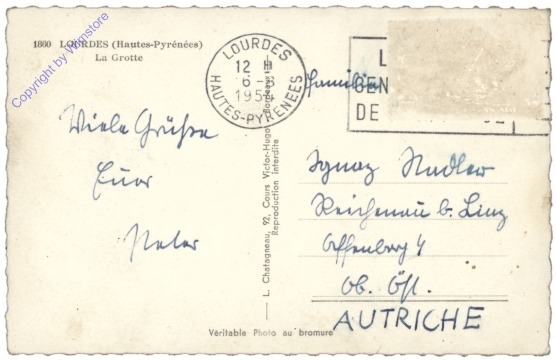 1860 LOURDES (Hautes-Pyrénées)
La Grotte
Copyright by Wumstore
LOURDES
12 H
6-8
195
HAUTES-PYRENEES
L
CEN
DE
Viele Grüße
Euer
Vater
Familie
Ignaz Nadler
Reichenau b. Linz
Offenberg 4
Ob. Öst.
AUTRICHE
L. Chatagneau, 92, Cours Victor-Hugo, Bordeaux
Reproduction interdite
Véritable Photo au bromure